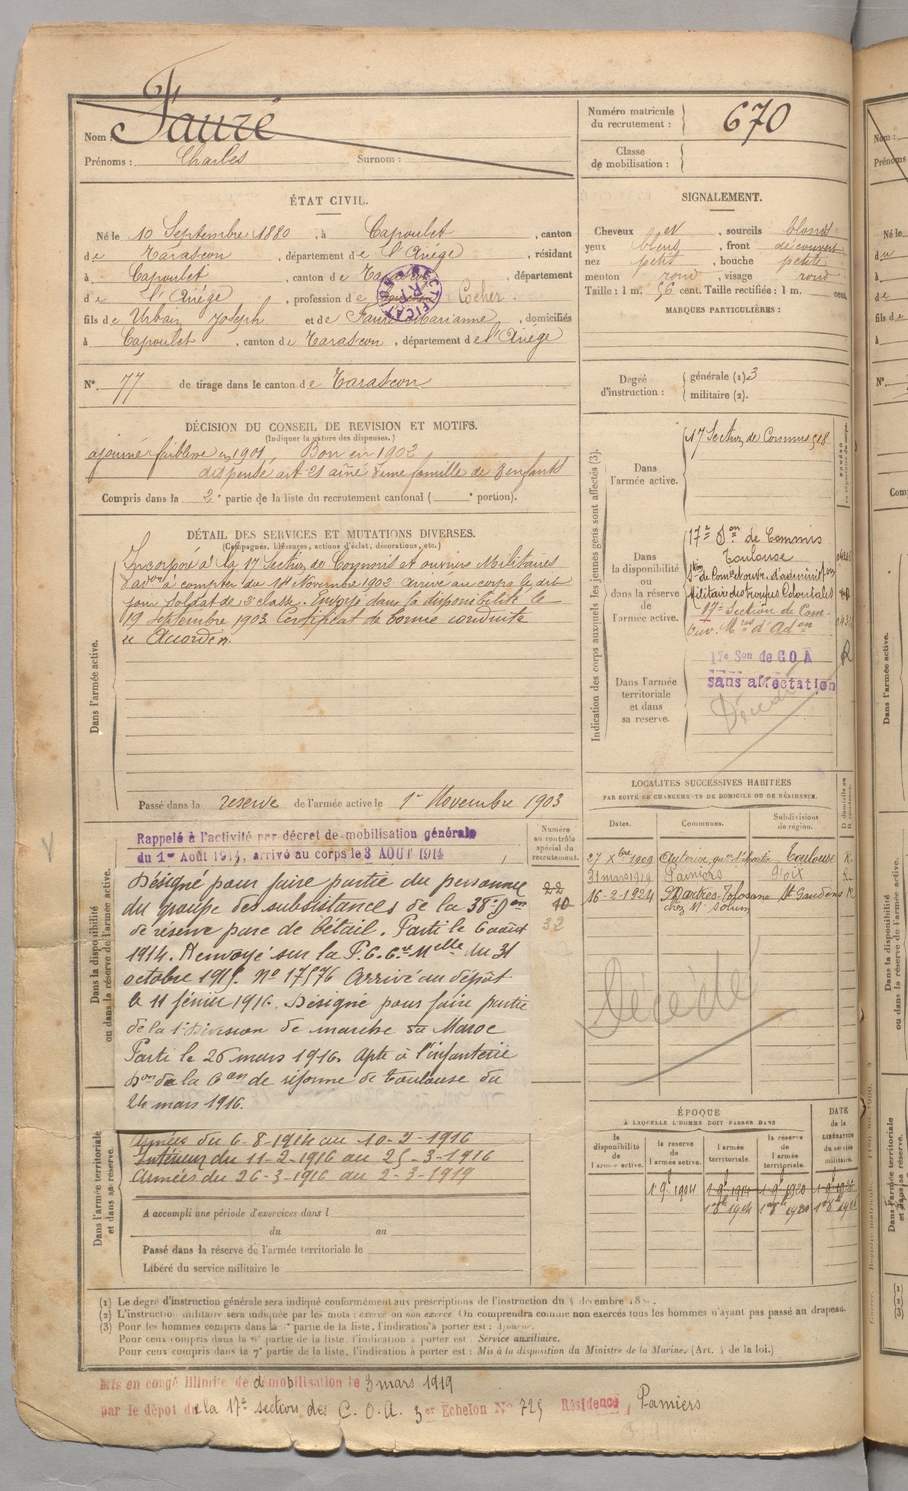 Nom : Fauré
Prénoms : Charles Surnom :
Numéro matricule du recrutement : 670
Classe de mobilisation :
ÉTAT CIVIL.
Né le 10 Septembre 1880, à Capoulet, canton
de Tarascon, département de l'Ariège, résidant
à Capoulet, canton de département
de l'Ariège, profession de Cocher.
fils de Urbain Joseph et de Faure Marianne, domiciliés
à Capoulet, canton de Tarascon, département de l'Ariège
N°. 77 de tirage dans le canton de Tarascon
SIGNALEMENT.
Cheveux , sourcils blonds
yeux bleus, front découvert
nez petit, bouche petite
menton rond, visage rond
Taille : 1 m. 56 cent. Taille rectifiée : 1 m. cent.
MARQUES PARTICULIÈRES :
Degré d'instruction : générale (1) 3
militaire (2).
DÉCISION DU CONSEIL DE REVISION ET MOTIFS.
(Indiquer la nature des dispenses.)
ajourné faiblesse en 1901, Bon en 1902
dispensé art 21 aîné d'une famille de 7 enfants
Compris dans la 2e partie de la liste du recrutement cantonal ( e portion).
DÉTAIL DES SERVICES ET MUTATIONS DIVERSES.
(Campagnes, blessures, actions d'éclat, décorations, etc.)
Dans l'armée active.
Incorporé à la 17e Section de Commis et ouvriers Militaires
d'adon à compter du 14 Novembre 1902 arrivé au corps le dit
jour, soldat de 2e classe. Envoyé dans la disponibilité le
19 Septembre 1903. Certificat de bonne conduite
" Accordé "
Passé dans la reserve de l'armée active le 1er Novembre 1903
Dans la disponibilité ou dans la réserve de l'armée active.
Rappelé à l'activité par décret de mobilisation générale
du 1er Août 1914, arrivé au corps le 3 AOUT 1914
Désigné pour faire partie du personnel
du groupe des subsistances de la 38e Don
de réserve parc de bétail. Parti le 6 août
1914. Renvoyé sur la P.C. Melle du 31
octobre 1915. No 17576 Arrivé au dépôt
le 11 février 1916. Désigné pour faire partie
de la 1e Division de marche du Maroc
Parti le 26 mars 1916. Apte à l'infanterie
Don de la Con de réforme de Toulouse du
24 mars 1916.
Numéro au contrôle spécial du recrutement.
22
10
32
Dans l'armée territoriale et dans sa réserve.
Armées du 6-8-1914 au 10-2-1916
Intérieur du 11-2-1916 au 25-3-1916
Armées du 26-3-1916 au 2-3-1919
A accompli une période d'exercices dans l
du au
Passé dans la réserve de l'armée territoriale le
Libéré du service militaire le
Indication des corps auxquels les jeunes gens sont affectés (3).
Dans l'armée active.
17 Section de Commis 518
Dans la disponibilité ou dans la réserve de l'armée active.
17e Son de Commis
Toulouse
Militaire des troupes Coloniales
17e Section de Com.
Ouv. Mres d'Adon
Dans l'armée territoriale et dans sa reserve.
17e Son de C O A
sans affectation
Décédé
LOCALITÉS SUCCESSIVES HABITÉES
PAR SUITE DE CHANGEMENTS DE DOMICILE OU DE RÉSIDENCE.
Dates. Communes. Subdivisions de région. D. domicile ou R. résidence.
27 Xbre 1909 Toulouse R.
31 mars 1919 Pamiers Foix R.
16-2-1924 Martres-Tolosane St Gaudens R
décédé
ÉPOQUE
À LAQUELLE L'HOMME DOIT PASSER DANS
la disponibilité de l'armée active. la reserve de l'armée active. l'armée territoriale. la réserve de l'armée territoriale. DATE de la LIBÉRATION du service militaire.
(1) Le degré d'instruction générale sera indiqué conformément aux prescriptions de l'instruction du 4 décembre
(2) L'instruction militaire sera indiquée par les mots : exercé ou non exercé. On comprendra comme non exercés tous les hommes n'ayant pas passé au drapeau.
(3) Pour les hommes compris dans la partie de la liste, l'indication à porter est : Ajourné.
Pour ceux compris dans la partie de la liste, l'indication à porter est : Service auxiliaire.
Pour ceux compris dans la 7e partie de la liste, l'indication à porter est : Mis à la disposition du Ministre de la Marine. (Art. 4 de la loi.)
Mis en congé illimité de démobilisation le 3 mars 1919
par le dépôt de la 17e section des C.O.A. 3er Echelon No 725 Résidence Pamiers